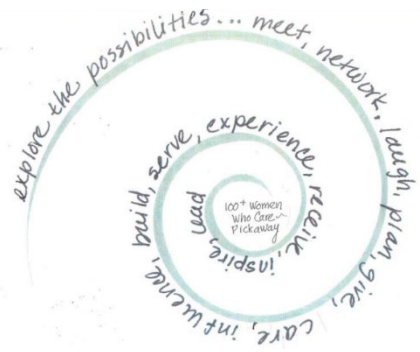 explore the possibilities... meet, network, laugh, plan, give, care, influence, build, serve, experience, receive, inspire, lead
100+ Women
Who Care~
Pickaway